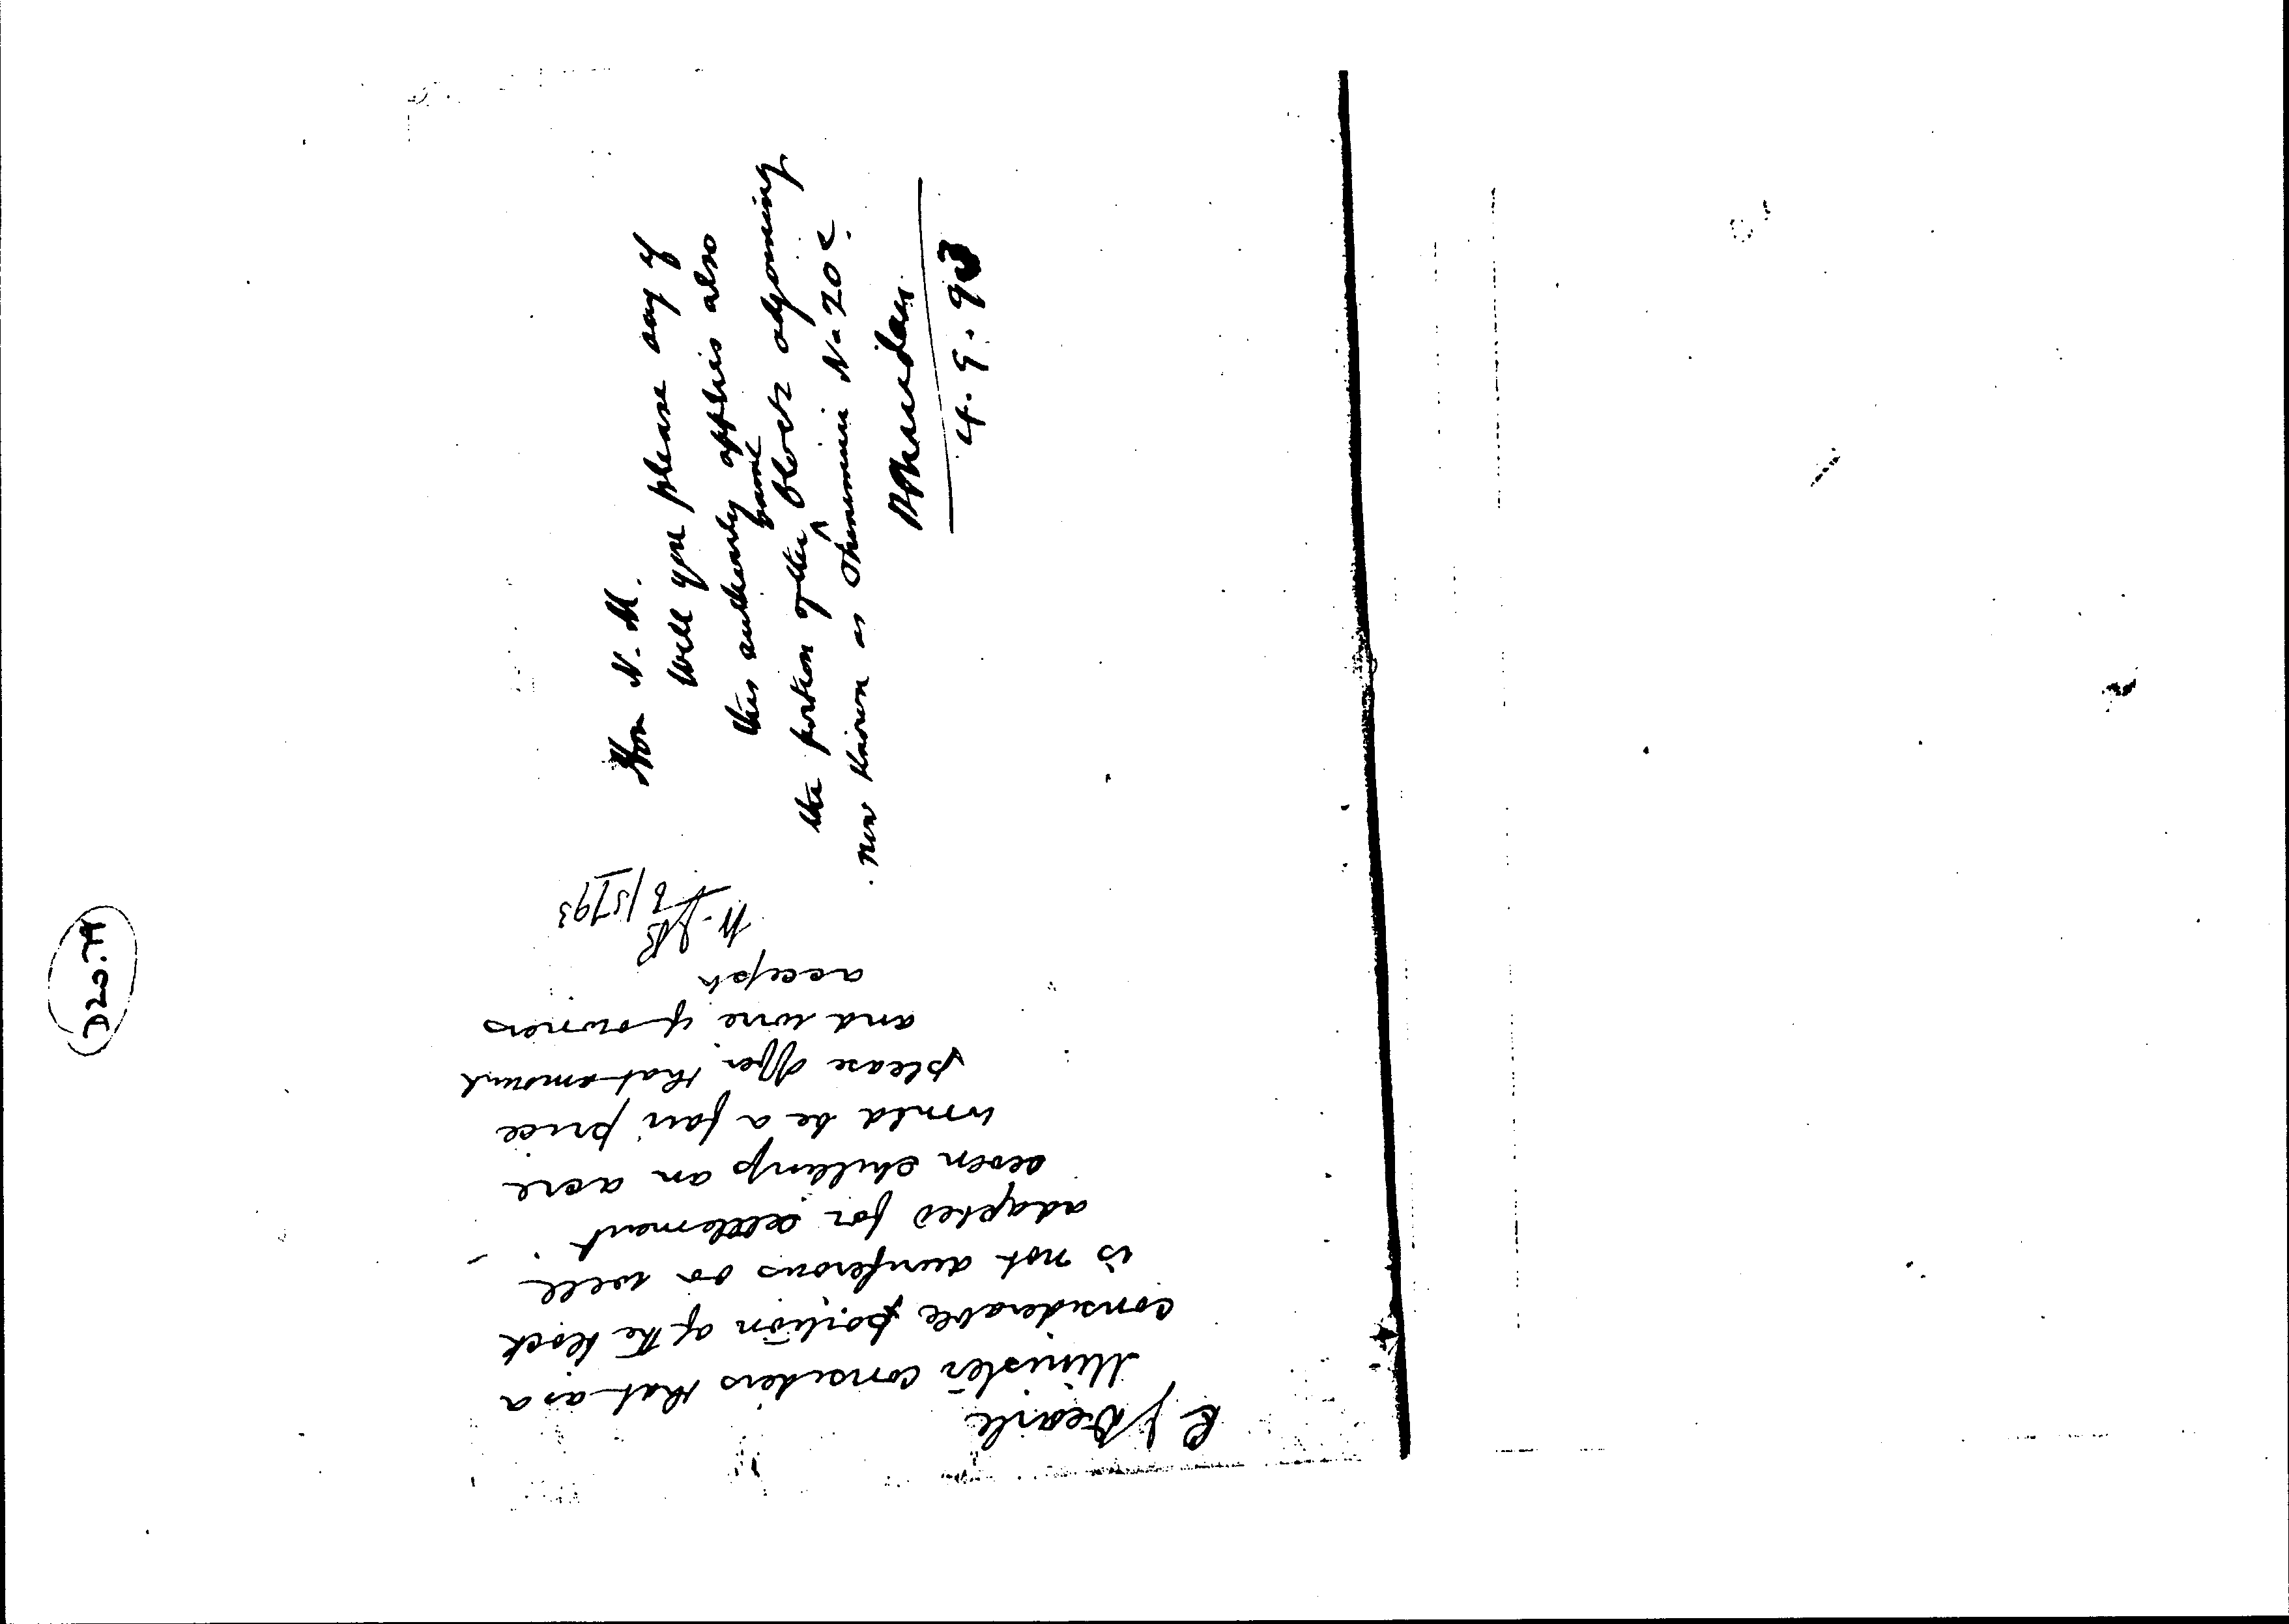 D20.79
R J Searle
Minister considers that as a
considerable portion of the block
is not auriferous or well
adapted for settlement
seven shillings an acre
would be a fair price
please offer that amount
and wire if owners
accept
3/5/93
Hon N. M.
Will you please say if
this authority applies also
the portion of the same block adjoining
now known as Ohinemuri No 20 c.
4. 9. 93